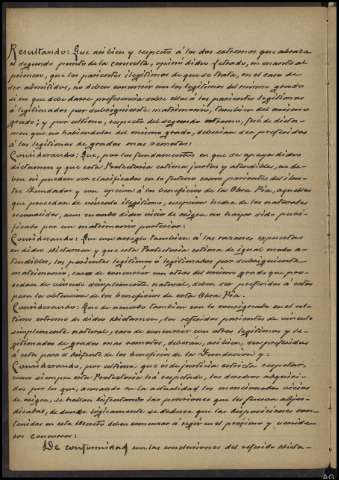 Resultando: Que así bien y respecto á los dos extremos que abraza
el segundo punto de la consulta, opinó dicho Letrado, en cuanto al
primero, que los parientes ilegítimos de que se trata, en el caso de
ser admitidos, no deben concurrir con los legítimos del mismo grado
si en que debe darse preferencia sobre ellos á los parientes legítimos
ó legitimados por subsiguiente matrimonio, tambien del mismo
grado; y por último, respecto del segundo extremo, fué de dictá-
men que no habiéndolos del mismo grado, deberían ser preferidos
á los legítimos de grados mas remotos:
Considerando: Que, por los fundamentos en que se apoya dicho
dictamen y que esta Protectoría estima justos y atendibles, no de-
ben ni pueden ser clasificados en lo futuro como parientes del
fundador y con opción á los beneficios de la Obra Pía, aquellos
que procedan de vínculo ilegítimo, excepción hecha de los naturales
reconocidos, aun cuando dicho vicio de origen no haya sido puri-
ficado por un matrimonio posterior:
Considerando: Que con arreglo tambien á las razones expuestas
en dicho dictamen y que esta Protectoría estima de igual modo a-
tendibles, los parientes legítimos ó legitimados por subsiguiente
matrimonio, caso de concurrir con otros del mismo grado que pro-
cedan de vínculo simplemente natural, deben ser preferidos á estos
para la obtencion de los beneficios de esta Obra Pía:
Considerando: Que de acuerdo tambien con lo consignado en el úl-
timo extremo de dicho dictamen, los referidos parientes de vínculo
simplemente natural, caso de concurrir con otros legítimos y le-
gitimados de grados mas remotos, deberán, así bien, ser preferidos
á estos para el disfrute de los beneficios de la Fundación y:
Considerando, por último, que es de justicia estricta respetar,
como siempre esta Protectoría há respetado, los derechos adquiri-
dos por los que, procediendo en la actualidad los mencionados vicios
de origen, se hallan disfrutando las pensiones que les fueron adju-
dicadas, de donde lógicamente se deduce que las disposiciones con-
tenidas en este decreto deben comenzar á regir en el próximo y venide-
ros concursos:
De conformidad con las conclusiones del referido dicta-